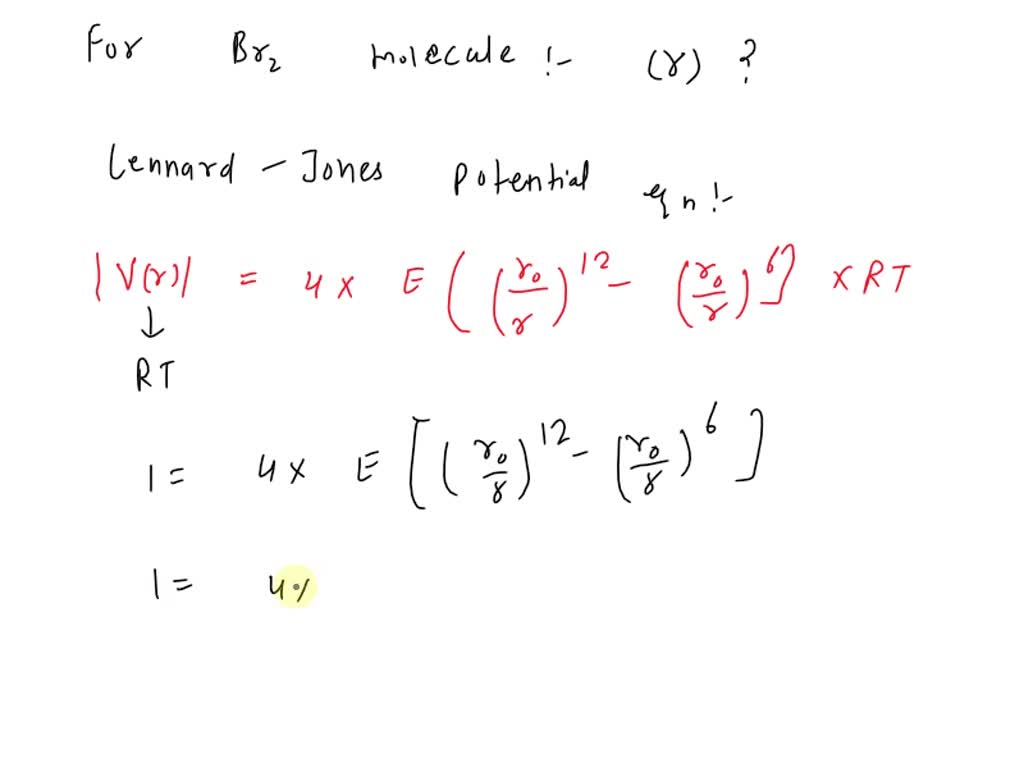 For Br₂ molecule :- (r) ?
Lennard - Jones Potential eqn :-
|V(r)| = 4 x E [ (r₀/r)¹² - (r₀/r)⁶ ] x RT
↓
RT
1 = 4 x E [ (r₀/r)¹² - (r₀/r)⁶ ]
1 = 4 x